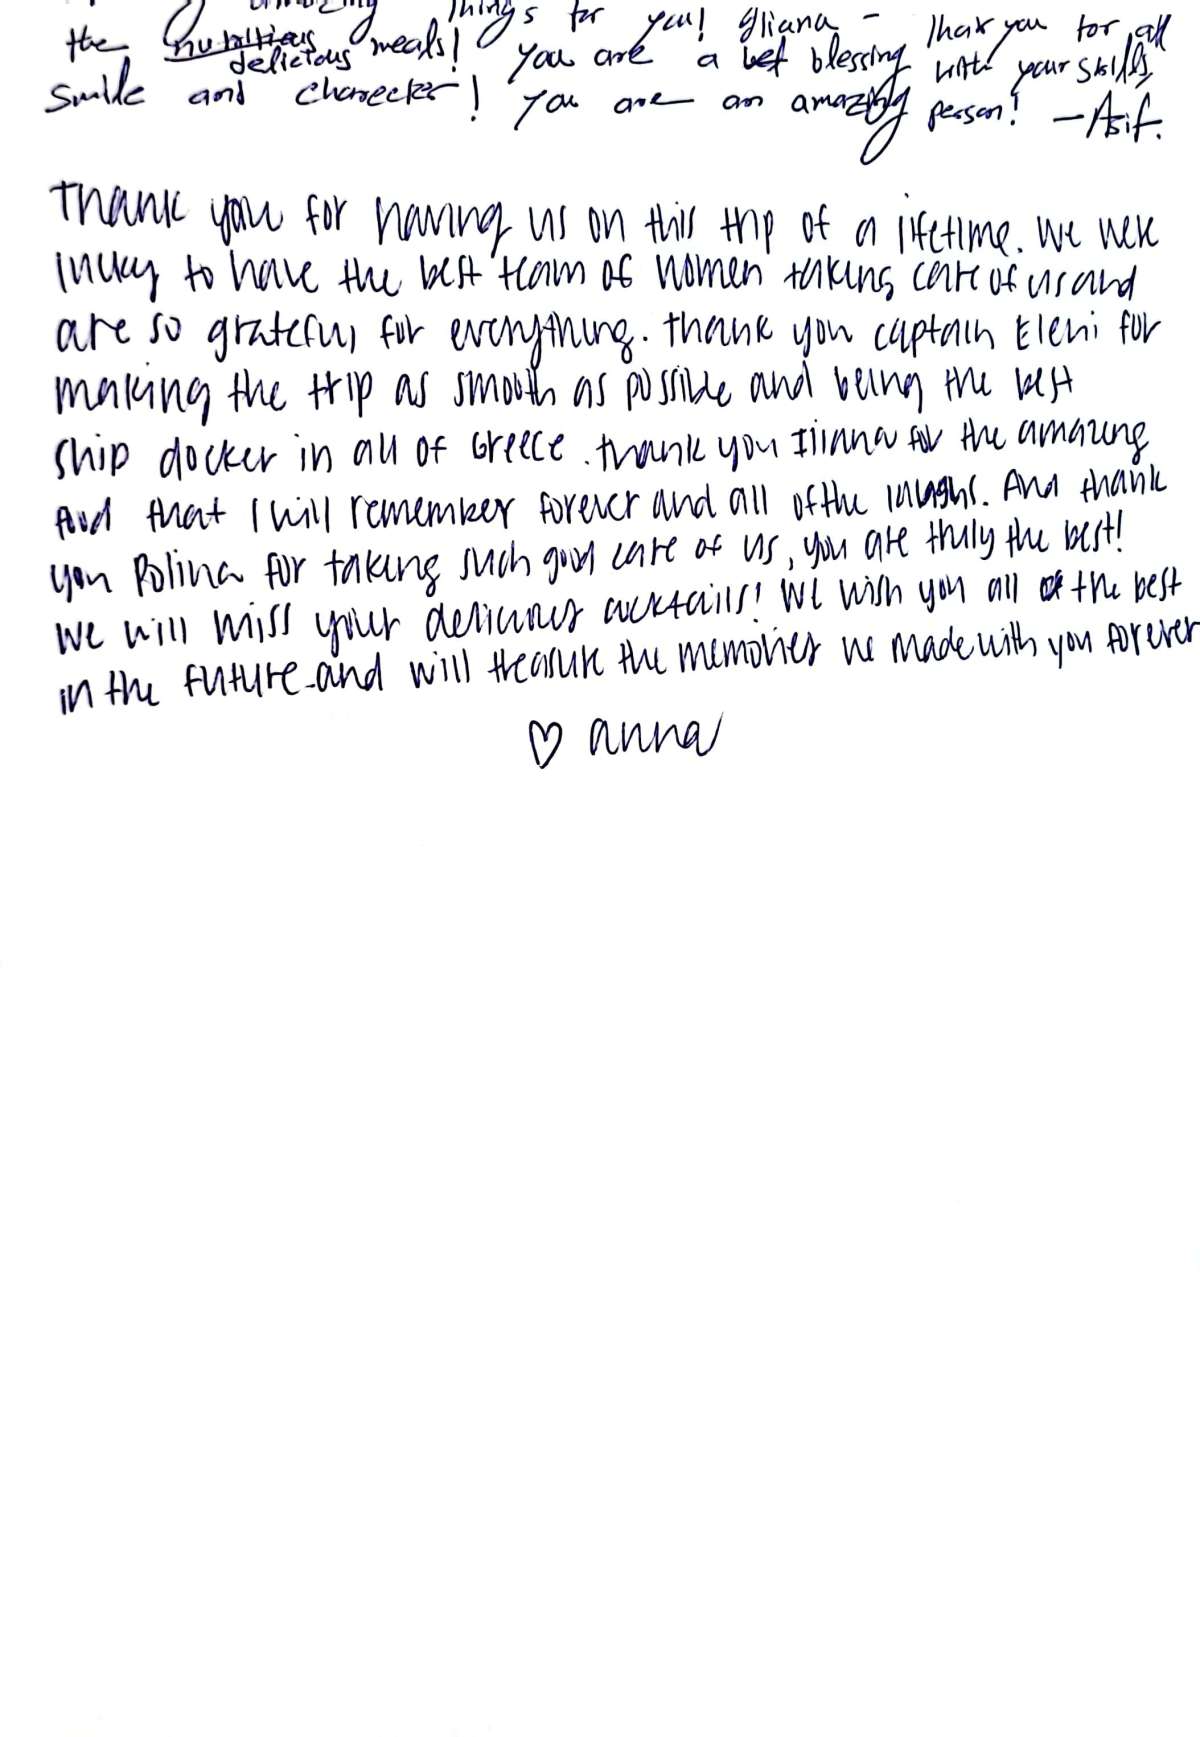 things for you! Iliana - Thank you for all
the nutritious delicious meals! You are a blessing with your skills,
Smile and Charecter! You are an amazing person! - Asif.
Thank you for having us on this trip of a lifetime. We were
lucky to have the best team of women taking care of us and
are so grateful for everything. Thank you captain Eleni for
making the trip as smooth as possible and being the best
ship docker in all of Greece. Thank you Iliana for the amazing
food that I will remember forever and all of the laughs. And thank
you Polina for taking such good care of us, you are truly the best!
We will miss your delicious cocktails! We wish you all the best
in the future and will treasure the memories we made with you forever
♡ anna